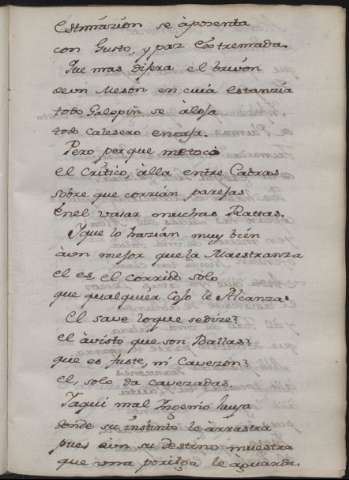 Estimazion se aposenta
con Gusto, y paz Extremada.
Que mas dijera el buvón
de un Meson en cuia estanzia
todo Galopin se aloja
todo calesero encaja.
Pero porque me toco
el Critico, alla entre Cabras
sobre que corrian parejas
En el vasar muchas Rattas.
Y que lo hazian muy bien
aun mejor que la Maestranza
el es el corrido solo
que qualquier Coso le Alcanza.
El save lo que se dize?
el à visto que son Ballas?
que es fuste, ni Cavezon?
el, solo da cavezadas.
Y aqui mal Ingenio huya
donde su instinto le arrastra
pues aun su destino muestra
que una porilga le aguarda.